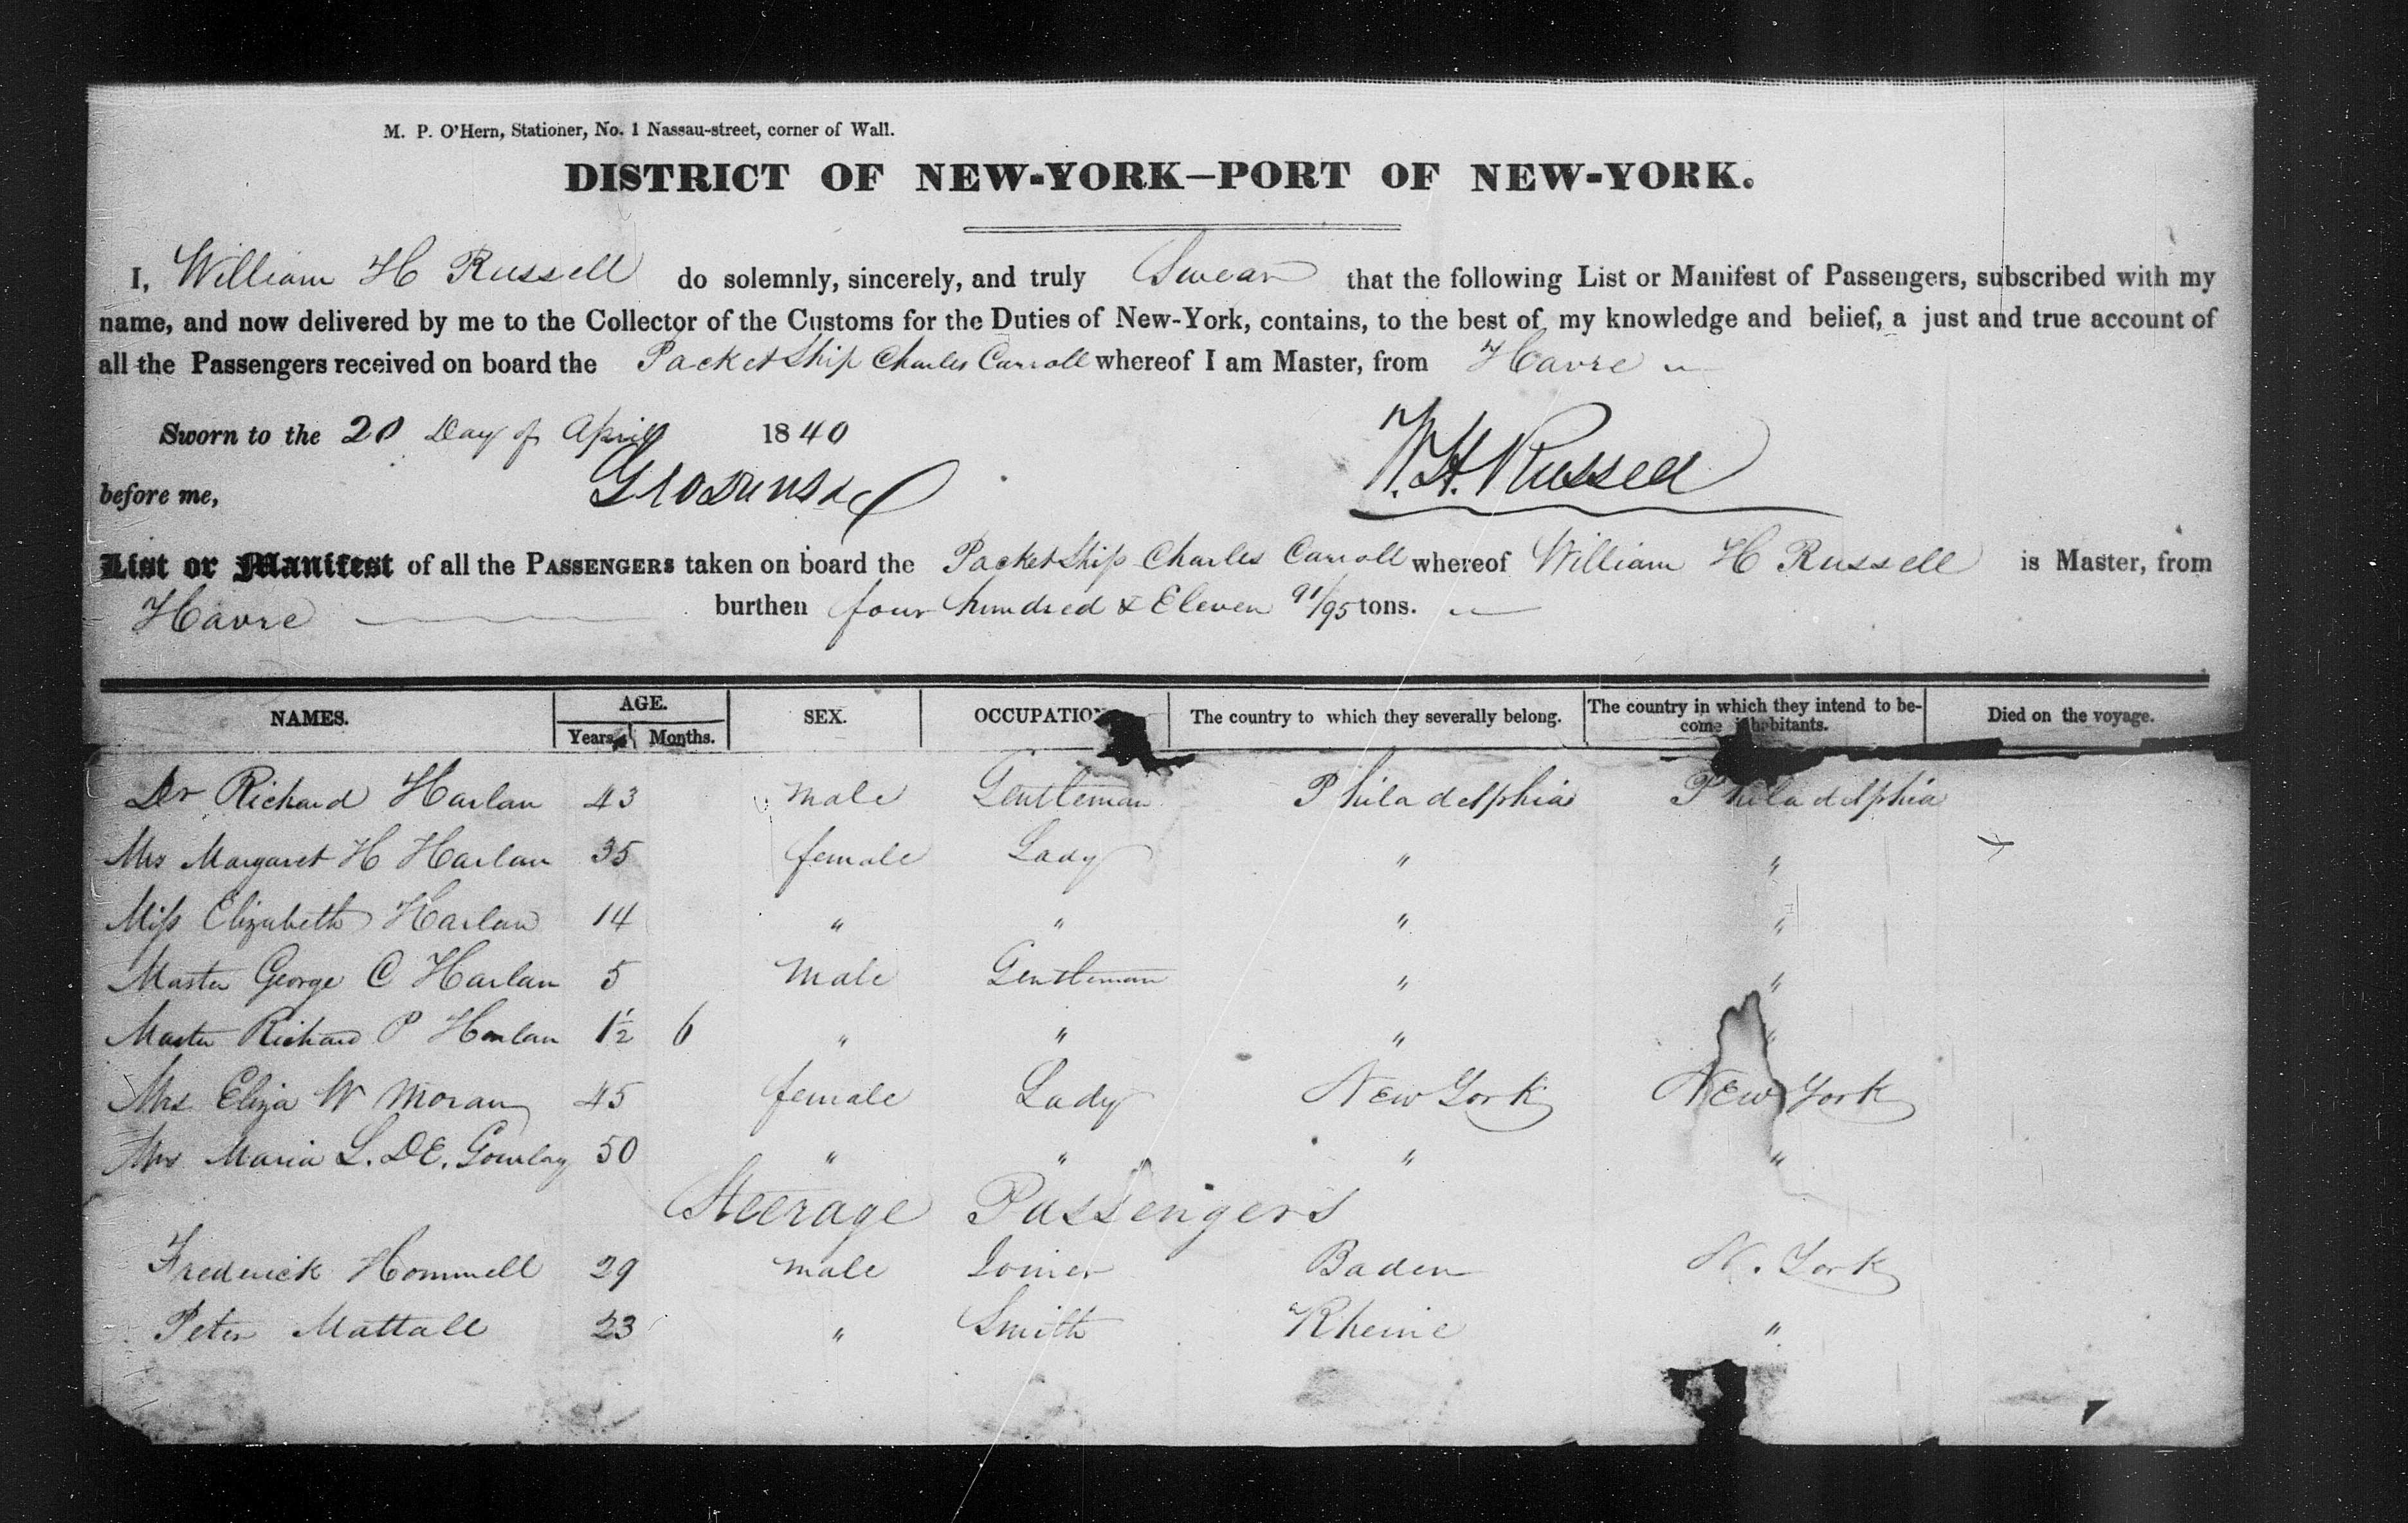 M. P. O'Hern, Stationer, No. 1 Nassau-street, corner of Wall.
DISTRICT OF NEW-YORK—PORT OF NEW-YORK.
I, William H Russell do solemnly, sincerely, and truly Swear that the following List or Manifest of Passengers, subscribed with my
name, and now delivered by me to the Collector of the Customs for the Duties of New-York, contains, to the best of my knowledge and belief, a just and true account of
all the Passengers received on board the Packet Ship Charles Carroll whereof I am Master, from Havre
Sworn to the 20 Day of April 1840
before me,
W. H. Russell
List or Manifest of all the PASSENGERS taken on board the Packet Ship Charles Carroll whereof William H Russell is Master, from
Havre burthen four hundred & Eleven 91/95 tons.
NAMES. AGE. Years. Months. SEX. OCCUPATION The country to which they severally belong. The country in which they intend to become inhabitants. Died on the voyage.
Dr Richard Harlan 43 male Gentleman Philadelphia Philadelphia
Mrs Margaret H Harlan 35 female Lady " "
Miss Elizabeth Harlan 14 " " " "
Master George C Harlan 5 Male Gentleman " "
Master Richard P Harlan 1½ 6 " " " "
Mrs Eliza W Moran 45 female Lady New York New York
Mrs Maria L. DE. Gourlay 50 " " " "
Steerage Passengers
Frederick Hommell 29 male Joiner Baden N. York
Peter Mattall 23 " Smith Rheine "